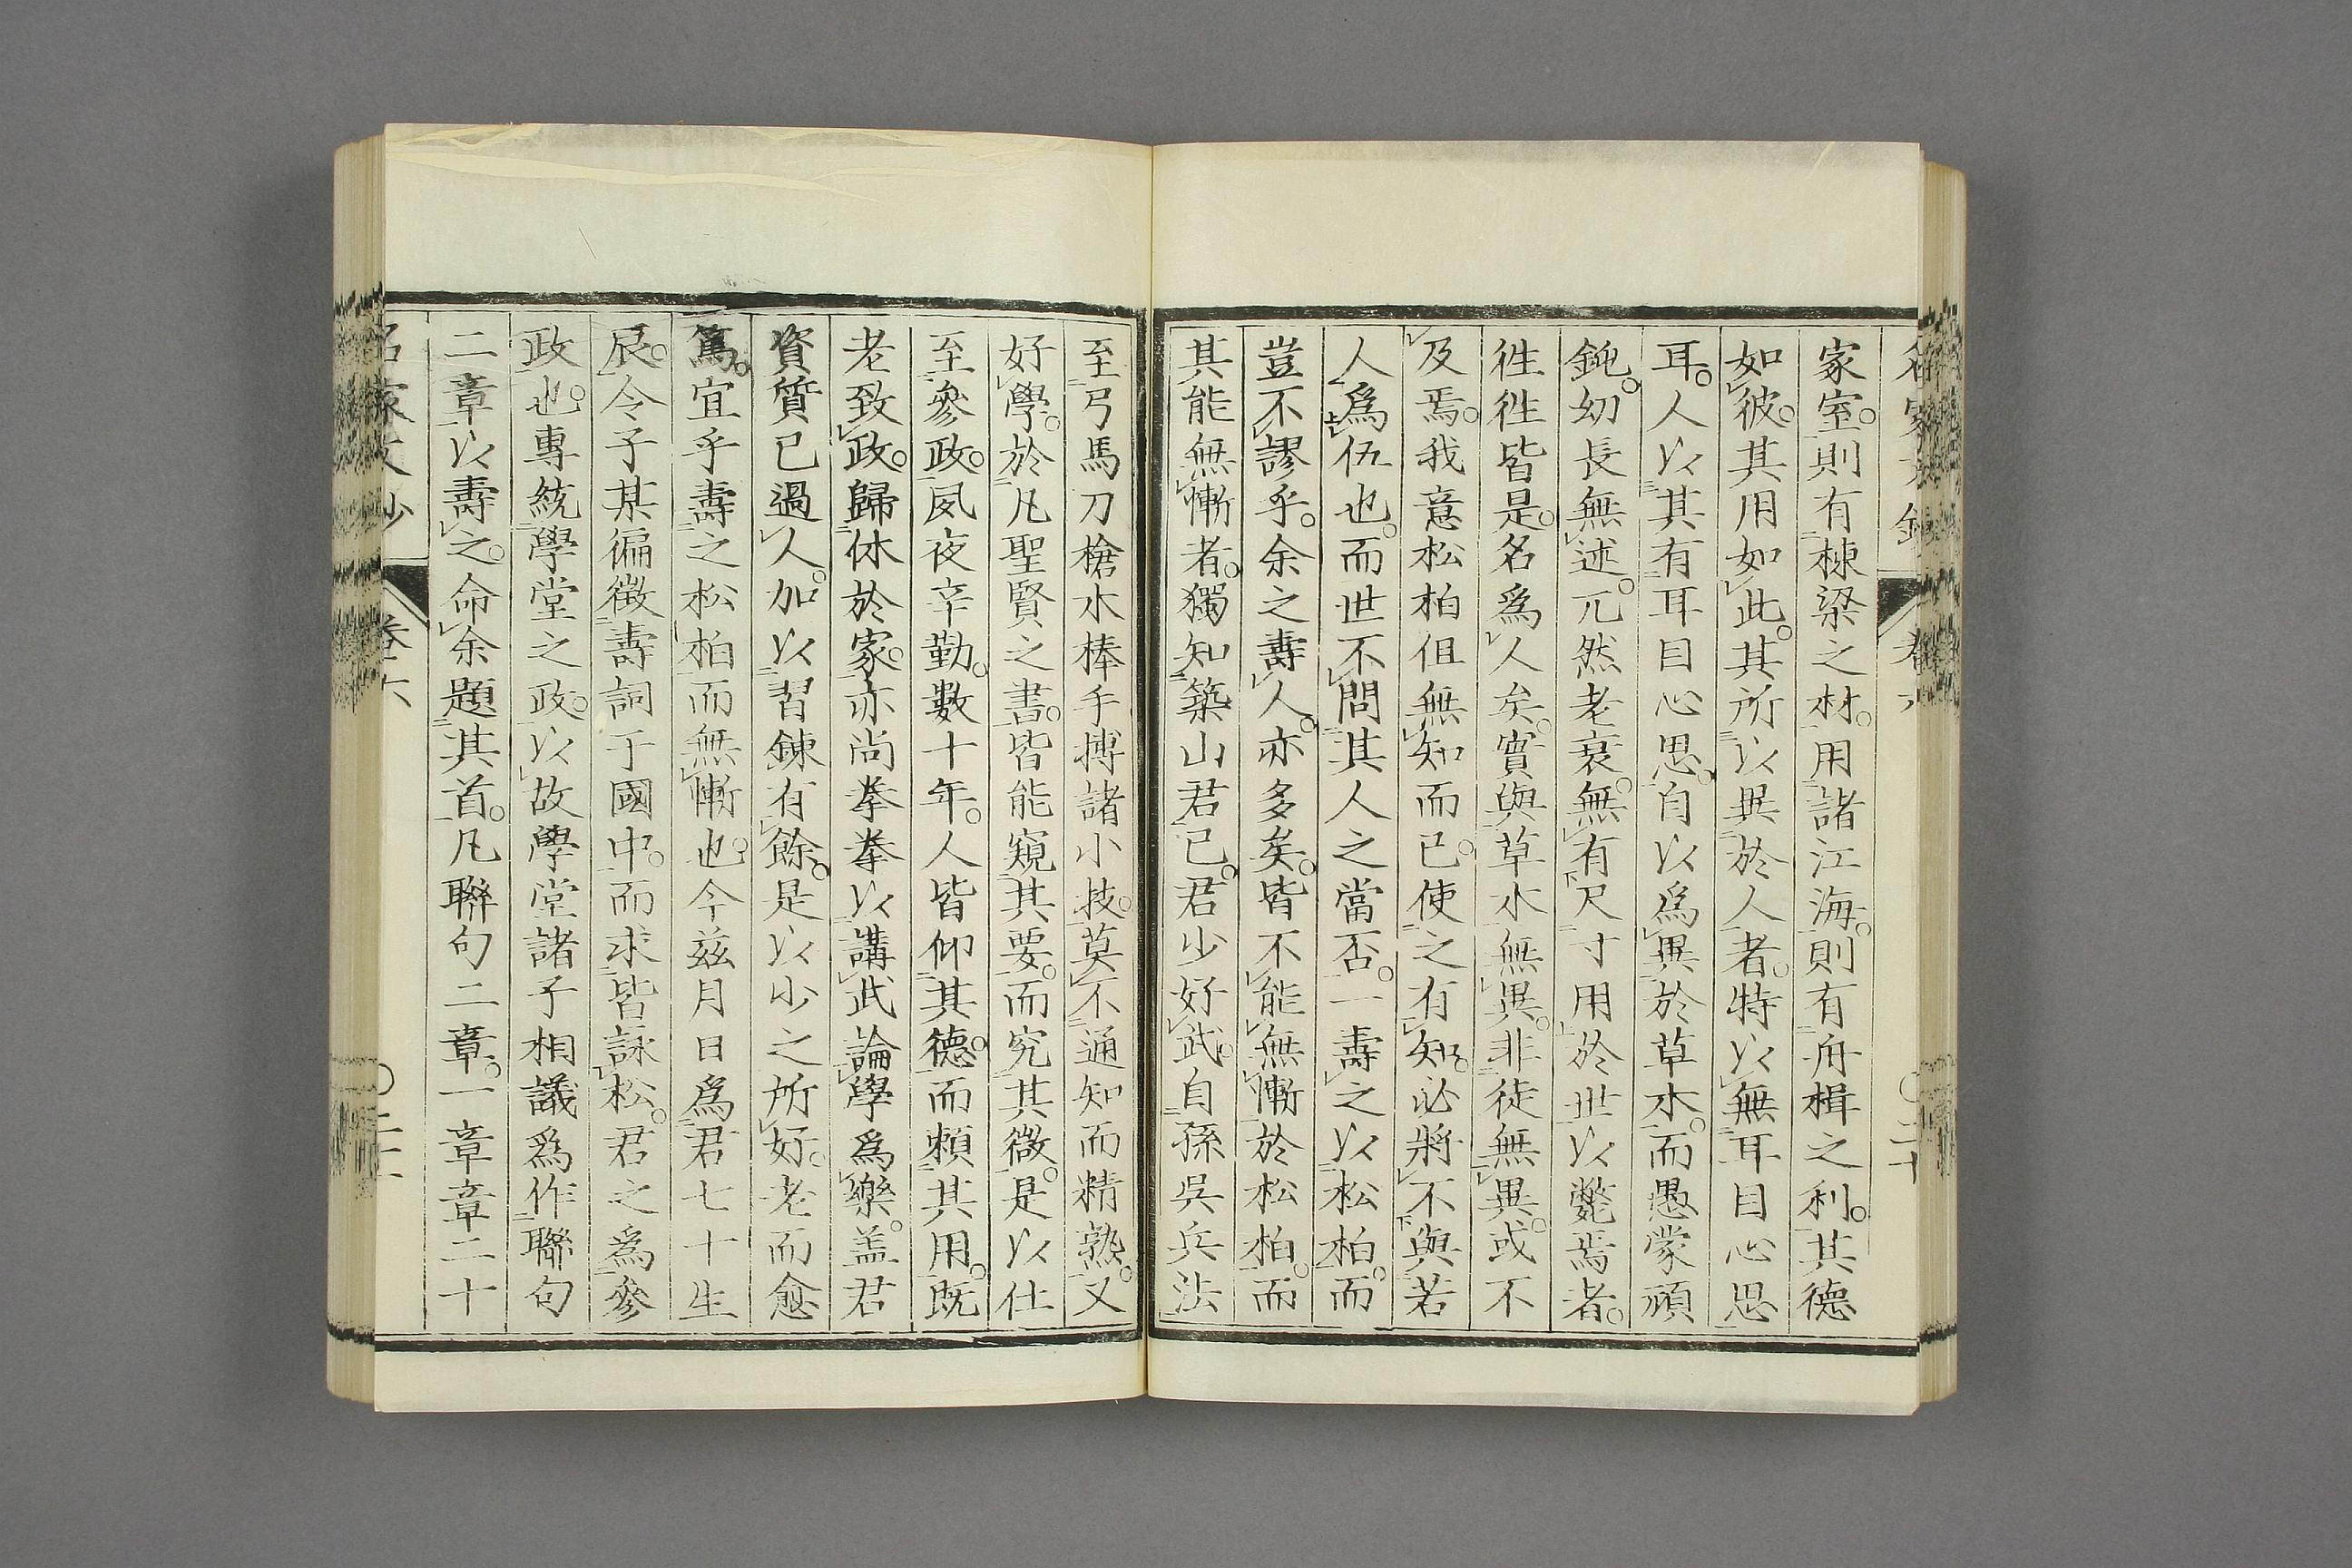 家室。則有棟梁之材。用諸江海。則有舟楫之利。其德
如彼。其用如此。其所以異於人者。特以無耳目心思
耳。人以其有耳目心思。自以為異於草木。而愚蒙頑
鈍。幼長無述。兀然老衰。無有尺寸用於世以斃焉者。
徃徃皆是。名爲人矣。實與草木無異。非徒無異。或不
及焉。我意松柏但無知而已。使之有知。必將不與若
人爲伍也。而世不問其人之當否。一壽之以松柏。而
豈不謬乎。余之壽人。亦多矣。皆不能無慚於松柏。而
其能無慚者。獨知築山君已。君少好武。自孫吳兵法
至弓馬刀槍水棒手搏諸小技。莫不通知而精熟。又
好學。於凡聖賢之書。皆能窺其要。而究其微。是以仕
至參政。夙夜辛勤。數十年。人皆仰其德。而頼其用。既
老致政。歸休於家。亦尚拳拳以講武論學爲樂。盖君
資質已過人。加以習鍊有餘。是以少之所好。老而愈
篤。宜乎壽之松柏而無慚也。今茲月日爲君七十生
辰。令子某徧徵壽詞于國中。而求皆詠松。君之爲參
政也。專統學堂之政。以故學堂諸子相議爲作聯句
二章以壽之。命余題其首。凡聯句二章。一章章二十
名家文抄 卷六